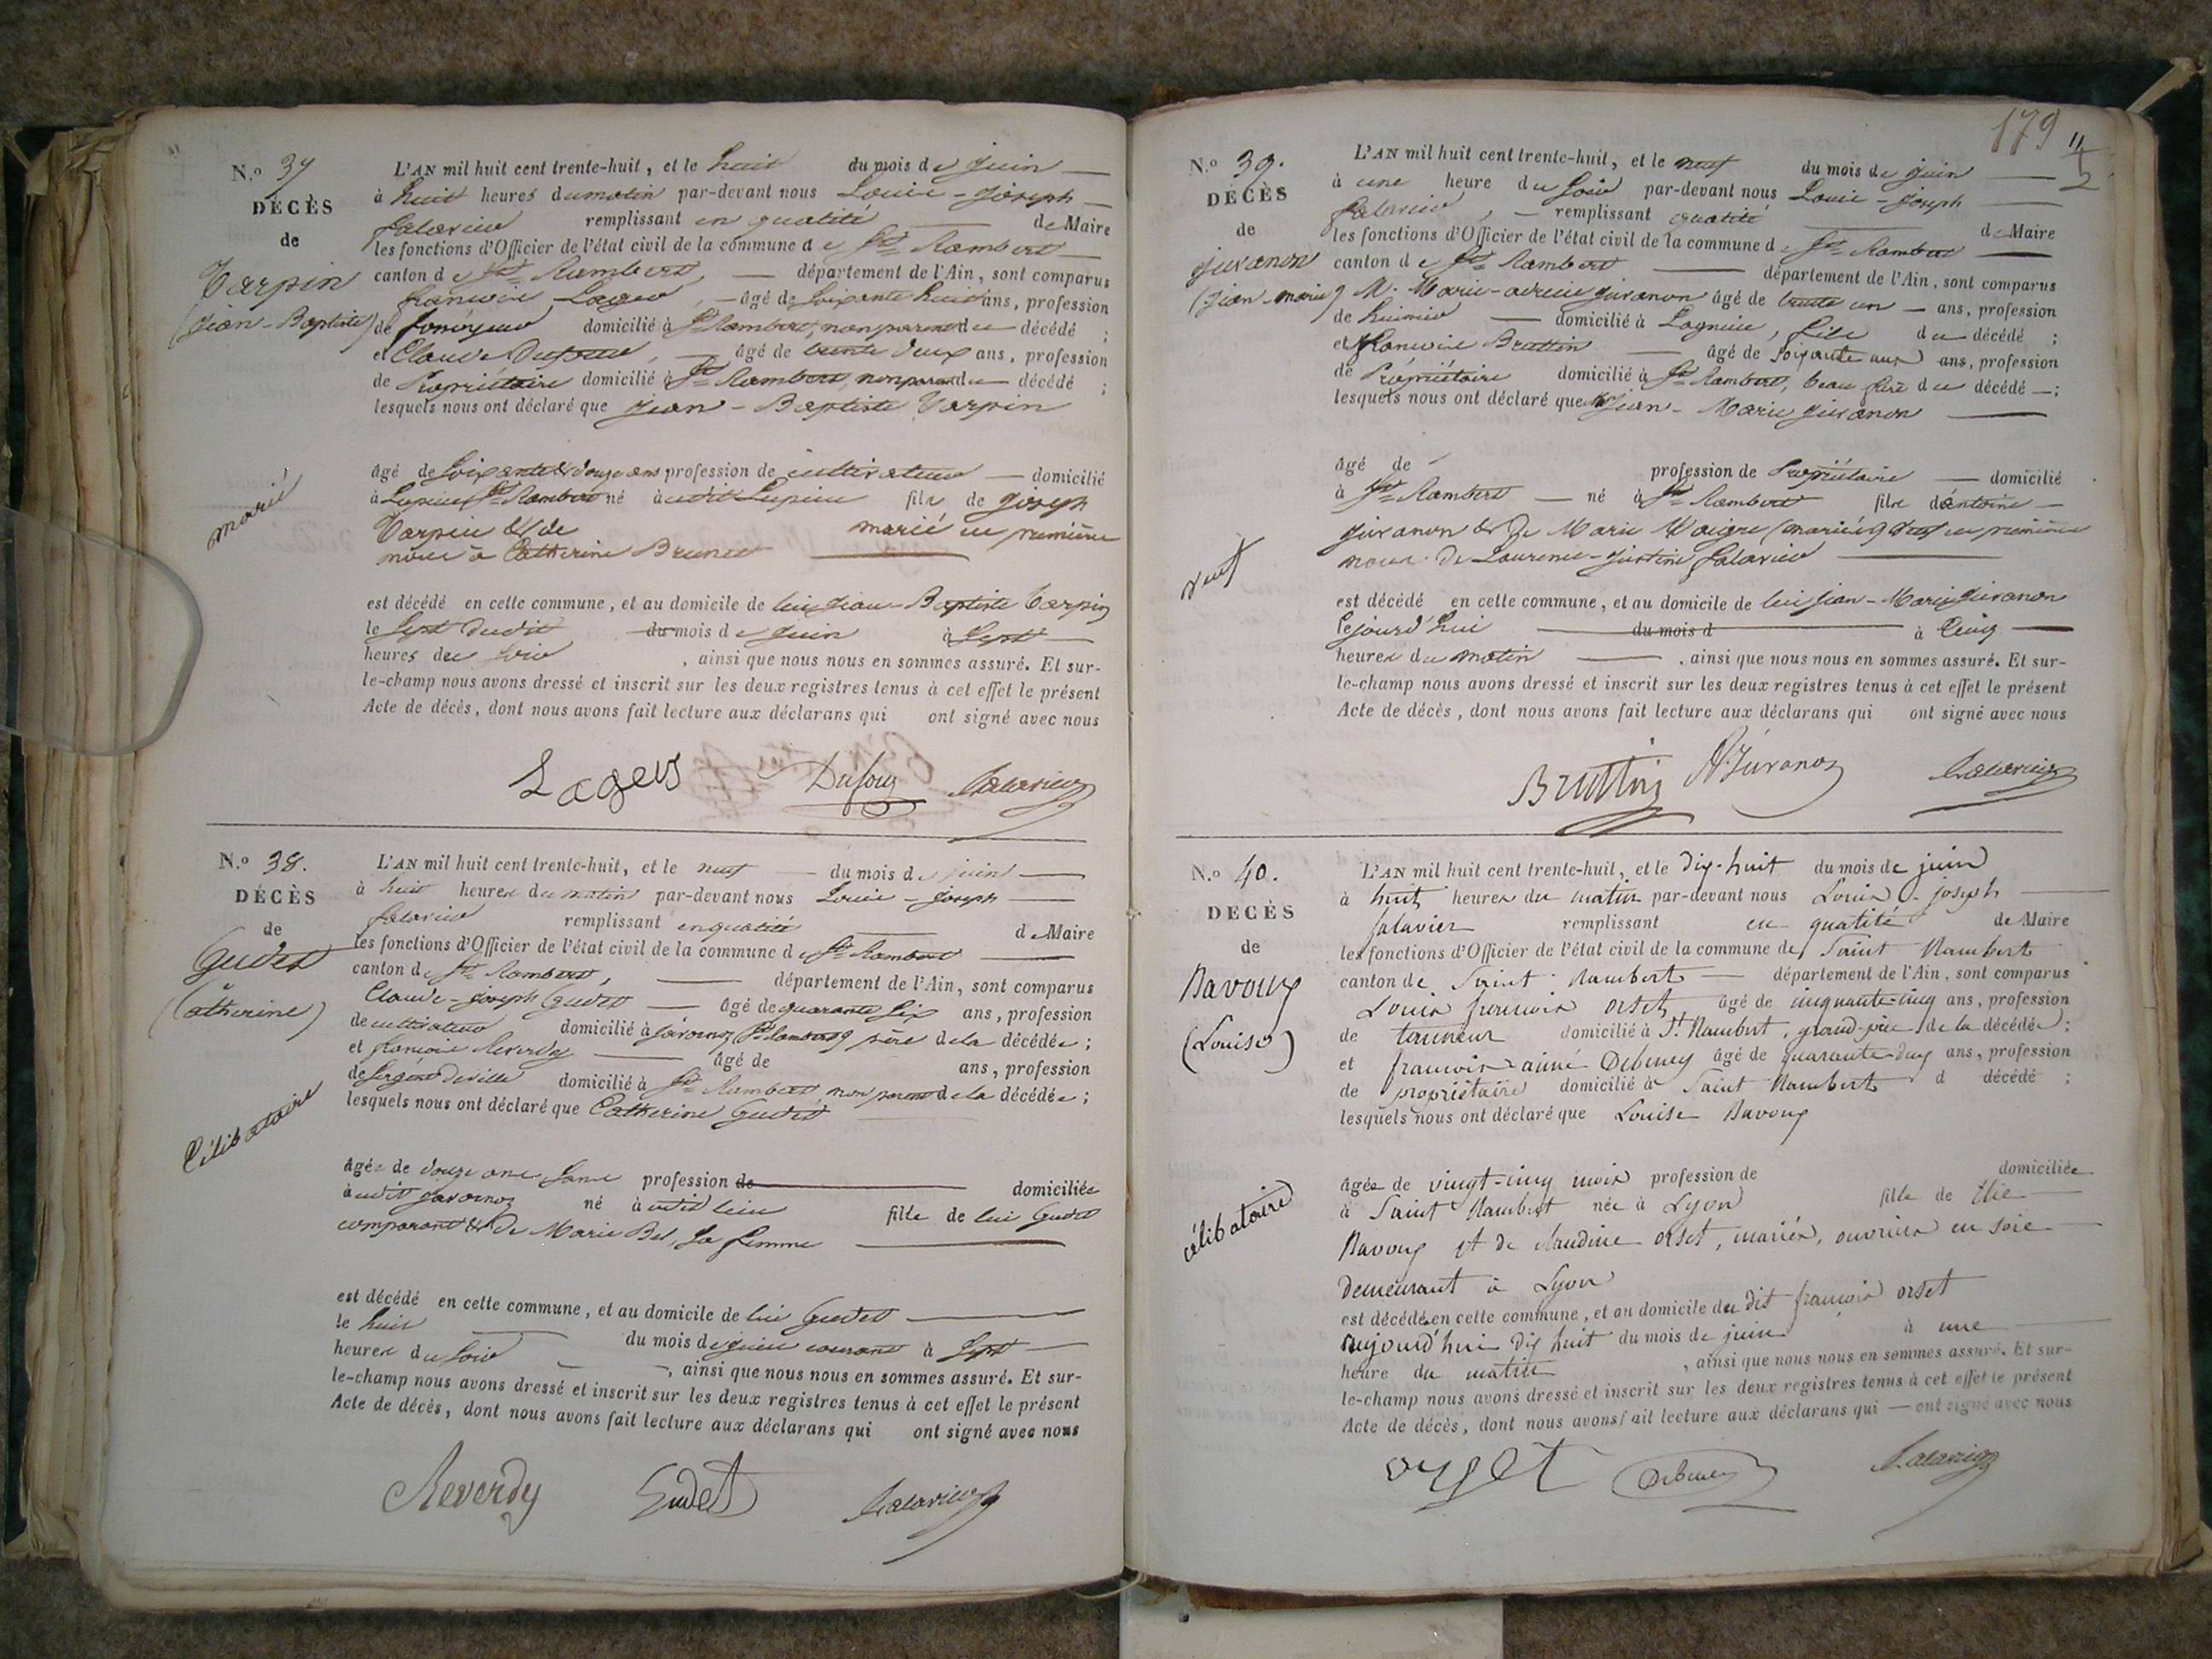 N.º 37
DÉCÈS
de
Tarpin
(Jean-Baptiste)
marié
L'AN mil huit cent trente-huit, et le huit du mois de juin
à huit heures du matin par-devant nous Louis-Joseph
Salavier remplissant en qualité de Maire
les fonctions d'Officier de l'état civil de la commune de St Rambert
canton de St Rambert, département de l'Ain, sont comparus
François Lager, âgé de soixante huit ans, profession
de domicilié à St Rambert, non parent du décédé ;
et Claude Dufour, âgé de trente deux ans, profession
de Propriétaire domicilié à St Rambert, non parent du décédé ;
lesquels nous ont déclaré que Jean-Baptiste Tarpin
âgé de soixante & douze ans profession de cultivateur domicilié
à Lupieu (St Rambert) né audit Lupieu fils de Joseph
Tarpin & de marié en première
noce à Catherine Brunet
est décédé en cette commune, et au domicile de lui Jean-Baptiste Tarpin
le sept dudit du mois de juin à sept
heures du soir, ainsi que nous nous en sommes assuré. Et sur-
le-champ nous avons dressé et inscrit sur les deux registres tenus à cet effet le présent
Acte de décès, dont nous avons fait lecture aux déclarans qui ont signé avec nous
Lager Dufour Salavier
N.º 38.
DÉCÈS
de
Gudet
(Catherine)
Célibataire
L'AN mil huit cent trente-huit, et le neuf du mois de juin
à huit heures du matin par-devant nous Louis-Joseph
Salavier remplissant en qualité de Maire
les fonctions d'Officier de l'état civil de la commune de St Rambert
canton de St Rambert, département de l'Ain, sont comparus
Claude-Joseph Gudet âgé de quarante six ans, profession
de cultivateur domicilié à Javornoz (St Rambert) père de la décédée ;
et François Reverdy âgé de ans, profession
de sergent de ville domicilié à St Rambert, non parent de la décédée ;
lesquels nous ont déclaré que Catherine Gudet
âgée de douze ans, sans profession de domiciliée
audit Javornoz né audit lieu fille de lui Gudet
comparant & de Marie Bel, sa femme
est décédé en cette commune, et au domicile de lui Gudet
le huit du mois de juin courant à sept
heures du soir, ainsi que nous nous en sommes assuré. Et sur-
le-champ nous avons dressé et inscrit sur les deux registres tenus à cet effet le présent
Acte de décès, dont nous avons fait lecture aux déclarans qui ont signé avec nous
Reverdy Gudet Salavier
179
N.º 39.
DÉCÈS
de
Juvanon
(Jean-Marie)
veuf
L'AN mil huit cent trente-huit, et le neuf du mois de juin
à une heure du soir par-devant nous Louis-Joseph
Salavier, remplissant qualité de Maire
les fonctions d'Officier de l'état civil de la commune de St Rambert
canton de St Rambert département de l'Ain, sont comparus
M. Marie- Juvanon âgé de trente un ans, profession
de huissier domicilié à Lagnieu, fils du décédé ;
et François Bruttin âgé de soixante ans, profession
de Propriétaire domicilié à St Rambert, beau frère du décédé ;
lesquels nous ont déclaré que Jean-Marie Juvanon
âgé de profession de Propriétaire domicilié
à St Rambert né à St Rambert fils d'antoine
Juvanon & de Marie Maigre (mariés) veuf en première
noces de Laurence-Justine Salavier
est décédé en cette commune, et au domicile de lui Jean-Marie Juvanon
cejourd'hui du mois d à cinq
heures du matin, ainsi que nous nous en sommes assuré. Et sur-
le-champ nous avons dressé et inscrit sur les deux registres tenus à cet effet le présent
Acte de décès, dont nous avons fait lecture aux déclarans qui ont signé avec nous
Bruttin Juvanon Salavier
N.º 40.
DÉCÈS
de
Navoux
(Louise)
célibataire
L'AN mil huit cent trente-huit, et le dix-huit du mois de juin
à huit heures du matin par-devant nous Louis-Joseph
Salavier remplissant en qualité de Maire
les fonctions d'Officier de l'état civil de la commune de Saint Rambert
canton de Saint Rambert département de l'Ain, sont comparus
Louis françois orset âgé de cinquante-cinq ans, profession
de tanneur domicilié à St Rambert, grand-père de la décédée ;
et françois aimé Debeney âgé de quarante-deux ans, profession
de propriétaire domicilié à Saint Rambert d décédé ;
lesquels nous ont déclaré que Louise Navoux
âgée de vingt-cinq mois profession de domiciliée
à Saint Rambert née à Lyon fille de Elie
Navoux et de claudine orset, mariés, ouvriers en soie
demeurant à Lyon
est décédée en cette commune, et au domicile du dit françois orset
aujourd'hui dix huit du mois de juin à une
heure du matin, ainsi que nous nous en sommes assuré. Et sur-
le-champ nous avons dressé et inscrit sur les deux registres tenus à cet effet le présent
Acte de décès, dont nous avons fait lecture aux déclarans qui ont signé avec nous
orset Debeney Salavier